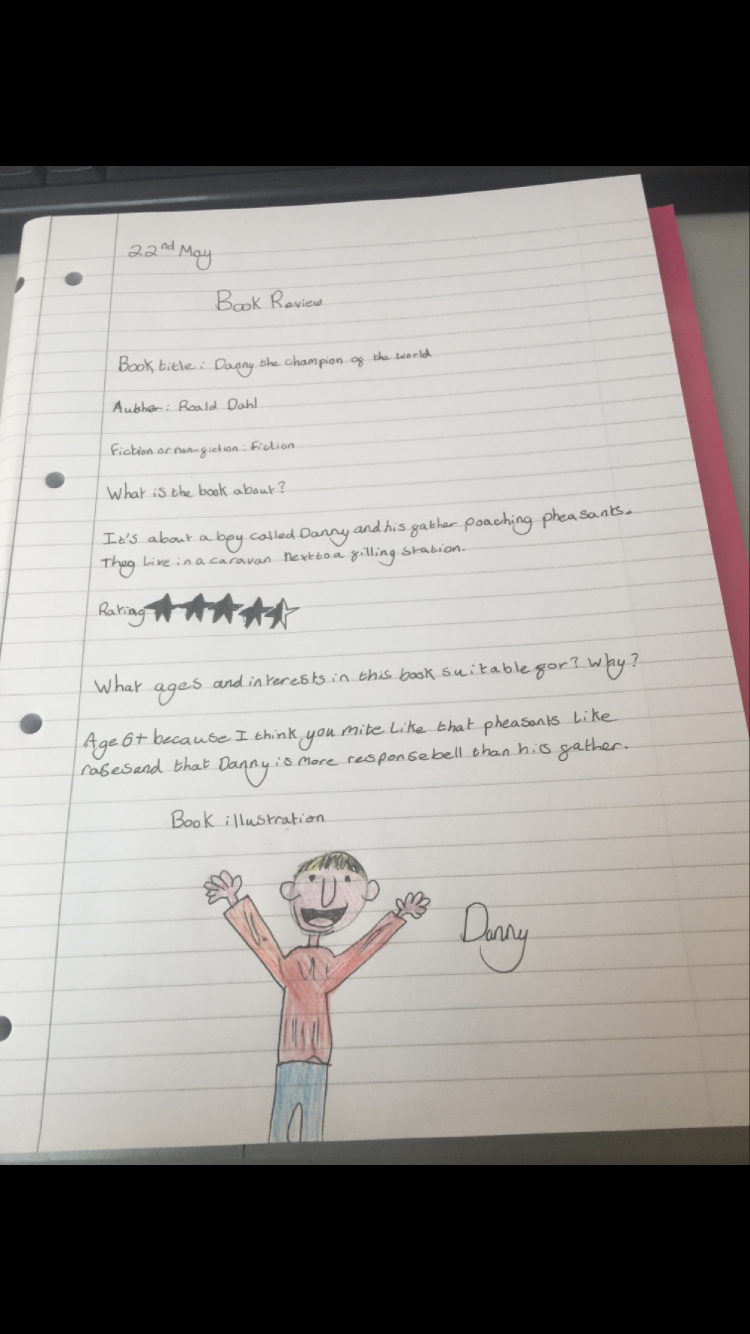 22nd May
Book Review
Book title: Danny the champion of the world
Author: Roald Dahl
Fiction or non-fiction: Fiction
What is the book about?
It's about a boy called Danny and his father poaching pheasants.
They live in a caravan next to a filling station.
Rating
What ages and interests in this book suitable for? Why?
Age 6+ because I think you mite like that pheasants like
rasesand that Danny is more responsebell than his father.
Book illustration
Danny